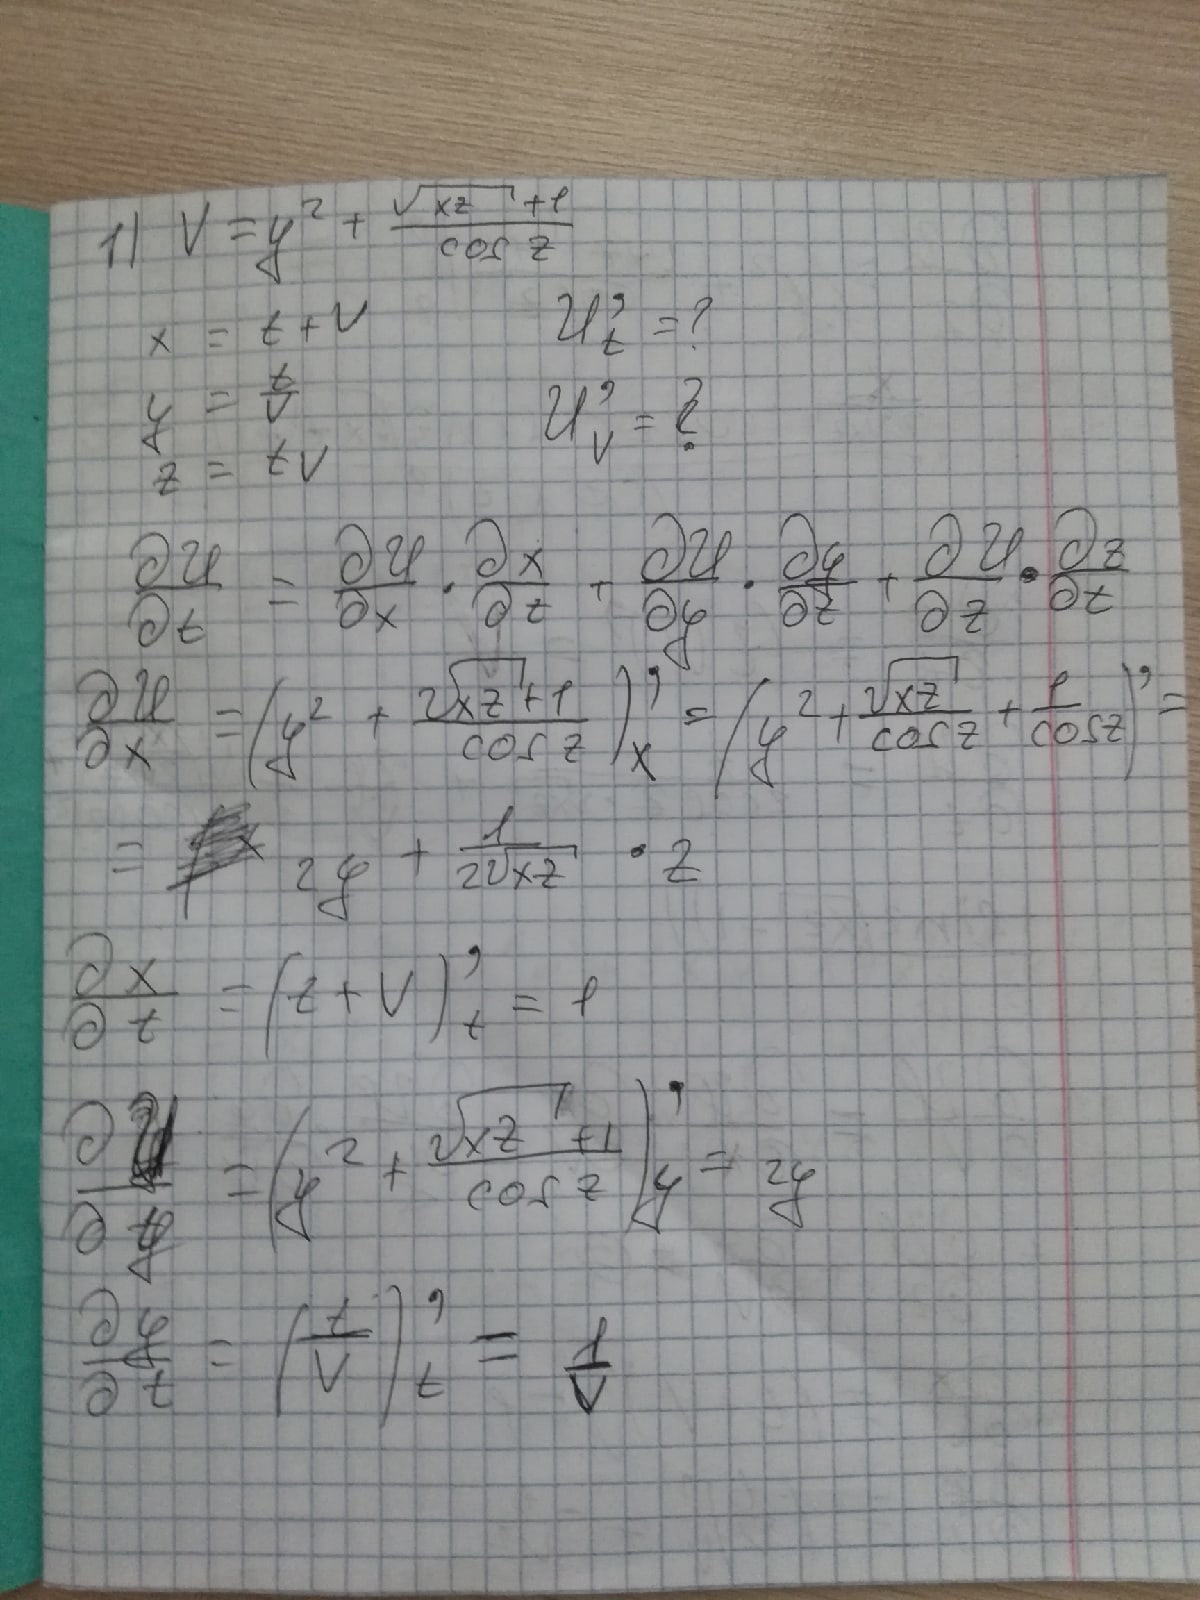 1) V = y² + (√xz + 1)/cos z
x = t + V    U't = ?
y = t/V    U'V = ?
z = tV
∂U/∂t = ∂U/∂x · ∂x/∂t + ∂U/∂y · ∂y/∂t + ∂U/∂z · ∂z/∂t
∂U/∂x = (y² + (√xz + 1)/cos z)'x = (y² + √xz/cos z + 1/cos z)' =
= 2y + 1/(2√xz) · z
∂x/∂t = (t + V)'t = 1
∂U/∂y = (y² + (√xz + 1)/cos z)'y = 2y
∂y/∂t = (t/V)'t = 1/V